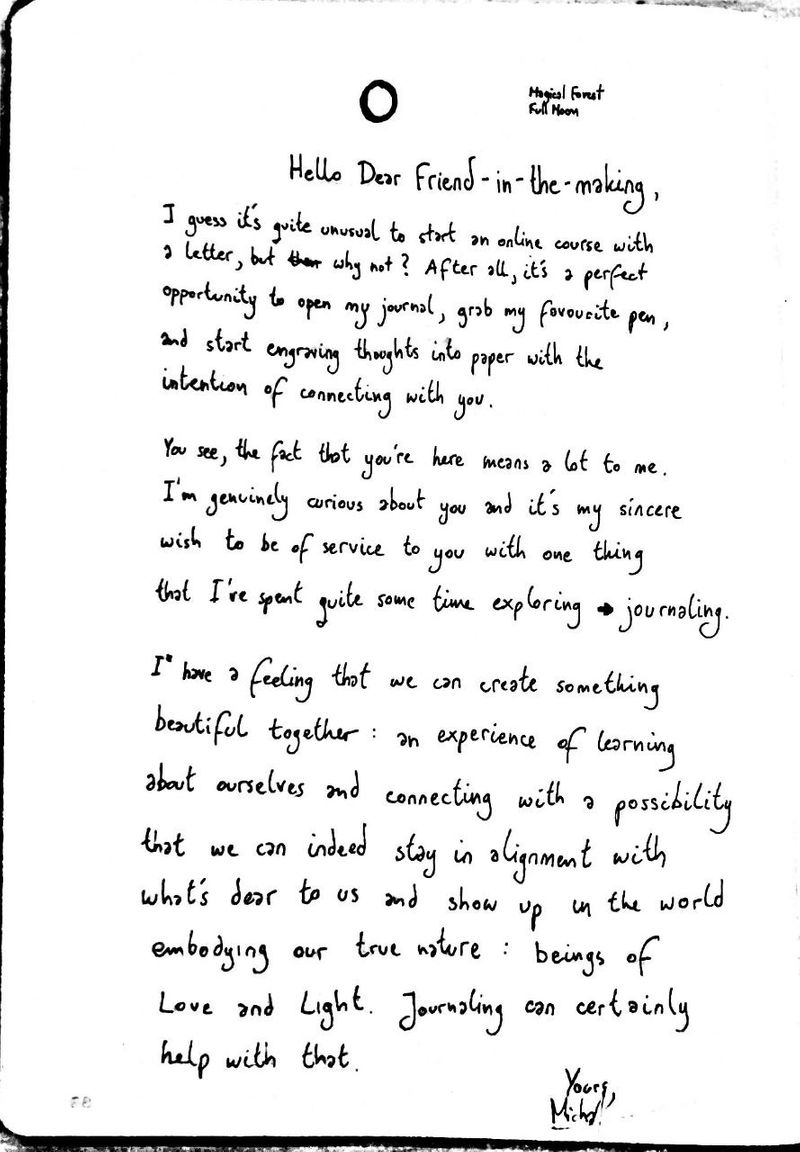 Magical Forest
Full Moon
Hello Dear Friend-in-the-making,
I guess it's quite unusual to start an online course with
a letter, but why not? After all, it's a perfect
opportunity to open my journal, grab my favourite pen,
and start engraving thoughts into paper with the
intention of connecting with you.
You see, the fact that you're here means a lot to me.
I'm genuinely curious about you and it's my sincere
wish to be of service to you with one thing
that I've spent quite some time exploring → journaling.
I have a feeling that we can create something
beautiful together: an experience of learning
about ourselves and connecting with a possibility
that we can indeed stay in alignment with
what's dear to us and show up in the world
embodying our true nature: beings of
Love and Light. Journaling can certainly
help with that.
Yours,
Michał